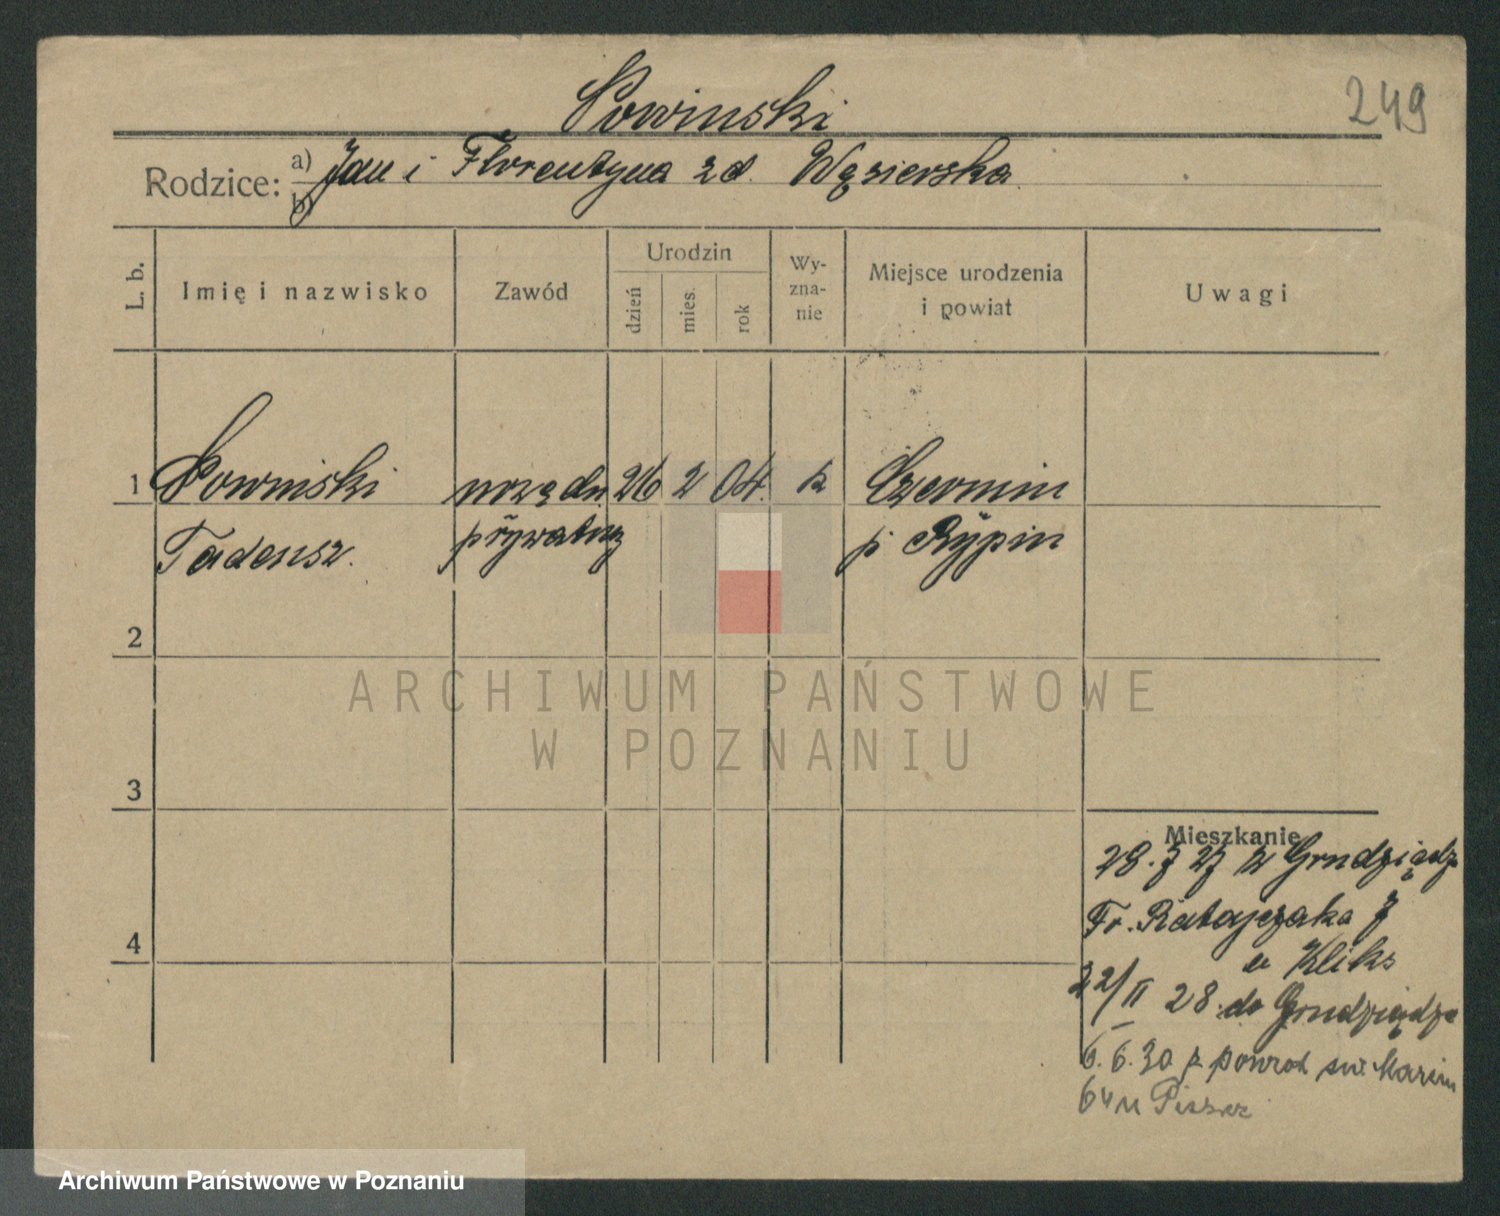 Sowinski
249
Rodzice: a) Jan i Florentyna zd. Wąsierska
b)
L. b.
Imię i nazwisko
Zawód
Urodzin
dzień
mies.
rok
Wy-
zna-
nie
Miejsce urodzenia
i powiat
Uwagi
1 Sowinski urzędn. 26 2 04. k Czermin
Tadeusz. prywatny p. Rypin
2
ARCHIWUM PAŃSTWOWE
W POZNANIU
3
Mieszkanie
28. 7 27 z Grudziądza
4 Fr. Ratajczaka 7
u Kliks
22/II 28. do Grudziądza
6. 6. 30 z powrot św. Marcin
64 u
Archiwum Państwowe w Poznaniu